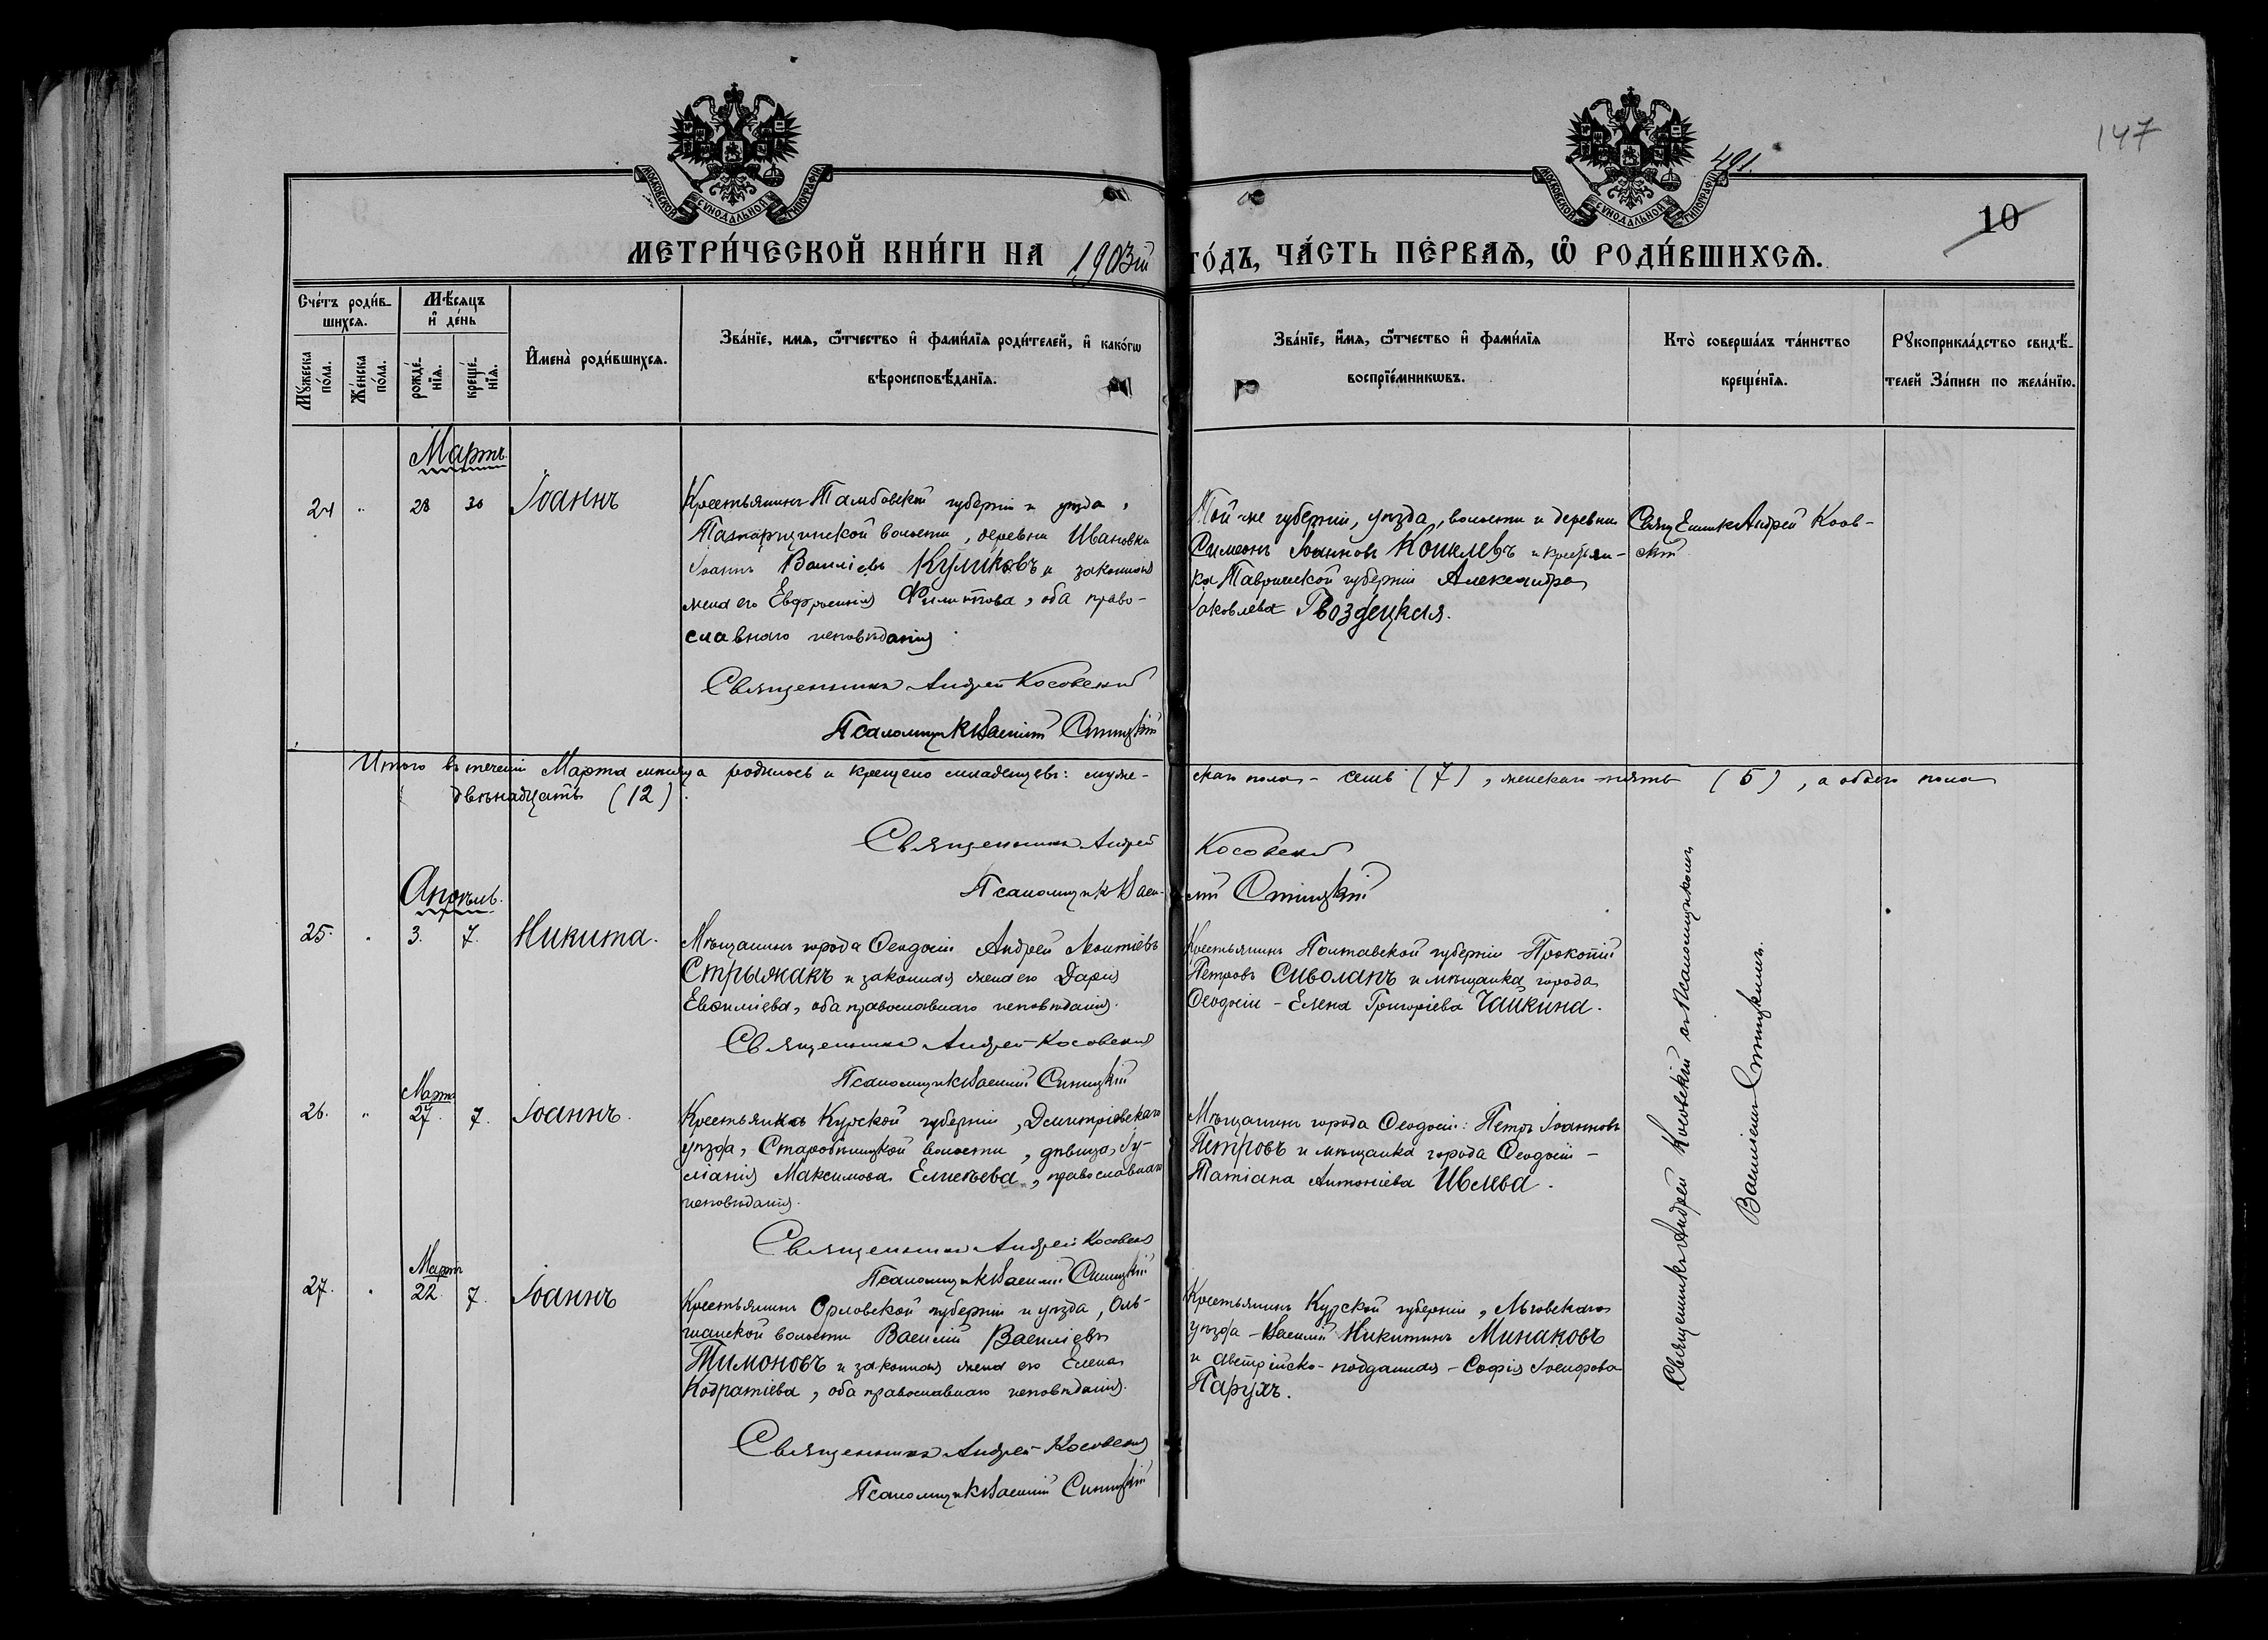 147
491.
10
МОСКОВСКОЙ СѴНОДАЛЬНОЙ ТИПОГРАФІИ
МОСКОВСКОЙ СѴНОДАЛЬНОЙ ТИПОГРАФІИ
МЕТРИ́ЧЕСКОЙ КНИ́ГИ НА 1903й ГО́ДЪ, ЧА́СТЬ ПЕ́РВАѦ, Ѡ҆ РОДИ́ВШИХСѦ.
Сче́тъ роди́в-
шихсѧ.
Мꙋ́жеска по́ла.
Же́нска по́ла.
Мѣ́сѧцъ
и҆ де́нь
рожде́-
нїѧ.
креще́-
нїѧ.
И҆мена̀ роди́вшихсѧ.
Зва́нїе, имѧ, ѿтчество и҆ фами́лїѧ роди́телей, и҆ како́гѡ
вѣроисповѣ́данїѧ.
Зва́нїе, и҆́мѧ, ѿтчество и҆ фами́лїѧ
воспрїе́мникѡвъ.
Кто̀ соверша́лъ та́инство
креще́нїѧ.
Рꙋкоприкла́дство свидѣ́-
телей За́писи по жела́нїю.
Мартъ.
24 " 28 30 Іоаннъ
Крестьянинъ Тамбовской губерніи и уѣзда,
Татарщинской волости, деревни Ивановки
Іоаннъ Василіевъ Куликовъ и законная
жена его Евфросинія Филиппова, оба право-
славнаго исповѣданія.
Священникъ Андрей Косовскій
Псаломщикъ Василій Синицкій
Той-же губерніи, уѣзда, волости и деревни
Симеонъ Іоанновъ Кошелевъ и крестьян-
ка Таврической губерніи Александра
Іаковлева Гвоздецкая.
Священникъ Андрей Косов-
скій
Итого въ теченіи Марта мѣсяца родилось и крещено младенцевъ: муже-
скаго пола - семь (7), женскаго пять (5), а обоего пола
двѣнадцать (12).
Священникъ Андрей Косовскій
Псаломщикъ Васи-
лій Синицкій
Апрѣль.
25. " 3. 7. Никита.
Мѣщанинъ города Ѳеодосіи Андрей Леонтіевъ
Стрыжакъ и законная жена его Дарія
Евѳиміева, оба православнаго исповѣданія.
Священникъ Андрей Косовскій
Псаломщикъ Василій Синицкій
Крестьянинъ Полтавской губерніи Прокопій
Петровъ Сиволапъ и мѣщанка города
Ѳеодосіи - Елена Григоріева Чайкина.
Мартъ
26. " 27. 7. Іоаннъ.
Крестьянка Курской губерніи, Дмитріевскаго
уѣзда, волости, дѣвица, Іу-
ліанія Максимова Елисѣева, православнаго
исповѣданія.
Священникъ Андрей Косовскій
Псаломщикъ Василій Синицкій
Мѣщанинъ города Ѳеодосіи: Петръ Іоанновъ
Петровъ и мѣщанка города Ѳеодосіи -
Татіана Антоніева Ивлева.
Мартъ
27. " 22. 7. Іоаннъ
Крестьянинъ Орловской губерніи и уѣзда, Оль-
шанской волости Василій Василіевъ
Тимоновъ и законная жена его Елена
Кодратіева, оба православнаго исповѣданія.
Священникъ Андрей Косовскій
Псаломщикъ Василій Синицкій
Крестьянинъ Курской губерніи, Льговскаго
уѣзда - Василій Никитинъ Минаковъ
и австрійско-подданная - Софія Іосифова
Парухъ.
Священникъ Андрей Косовскій съ Псаломщикомъ
Василіемъ Синицкимъ.